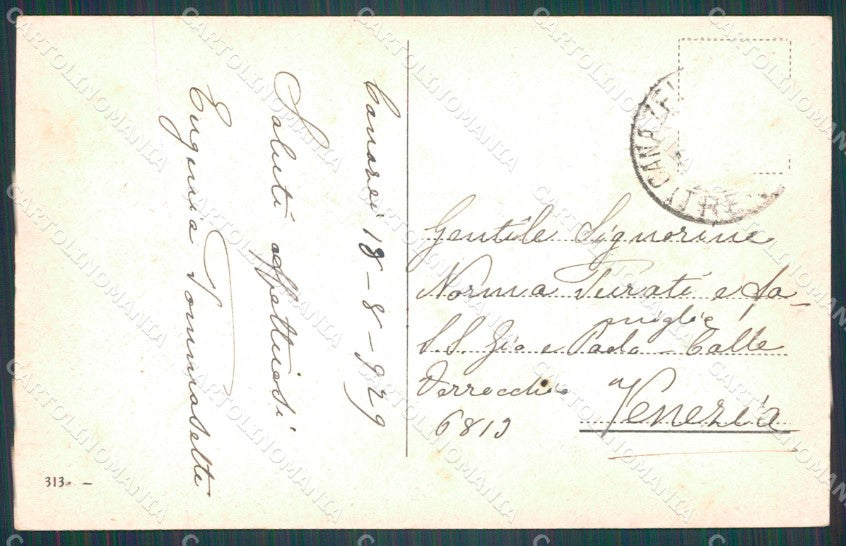 Canazei 18-8-929
Saluti affettuosi
Eugenia Tommasetti
Gentile Signorine
Norma Turati e fa-
miglia
S.S. Gio e Paolo - Calle
Verrocchio
6813
Venezia
CANAZEI
TRE
313. -
CARTOLINOMANIA